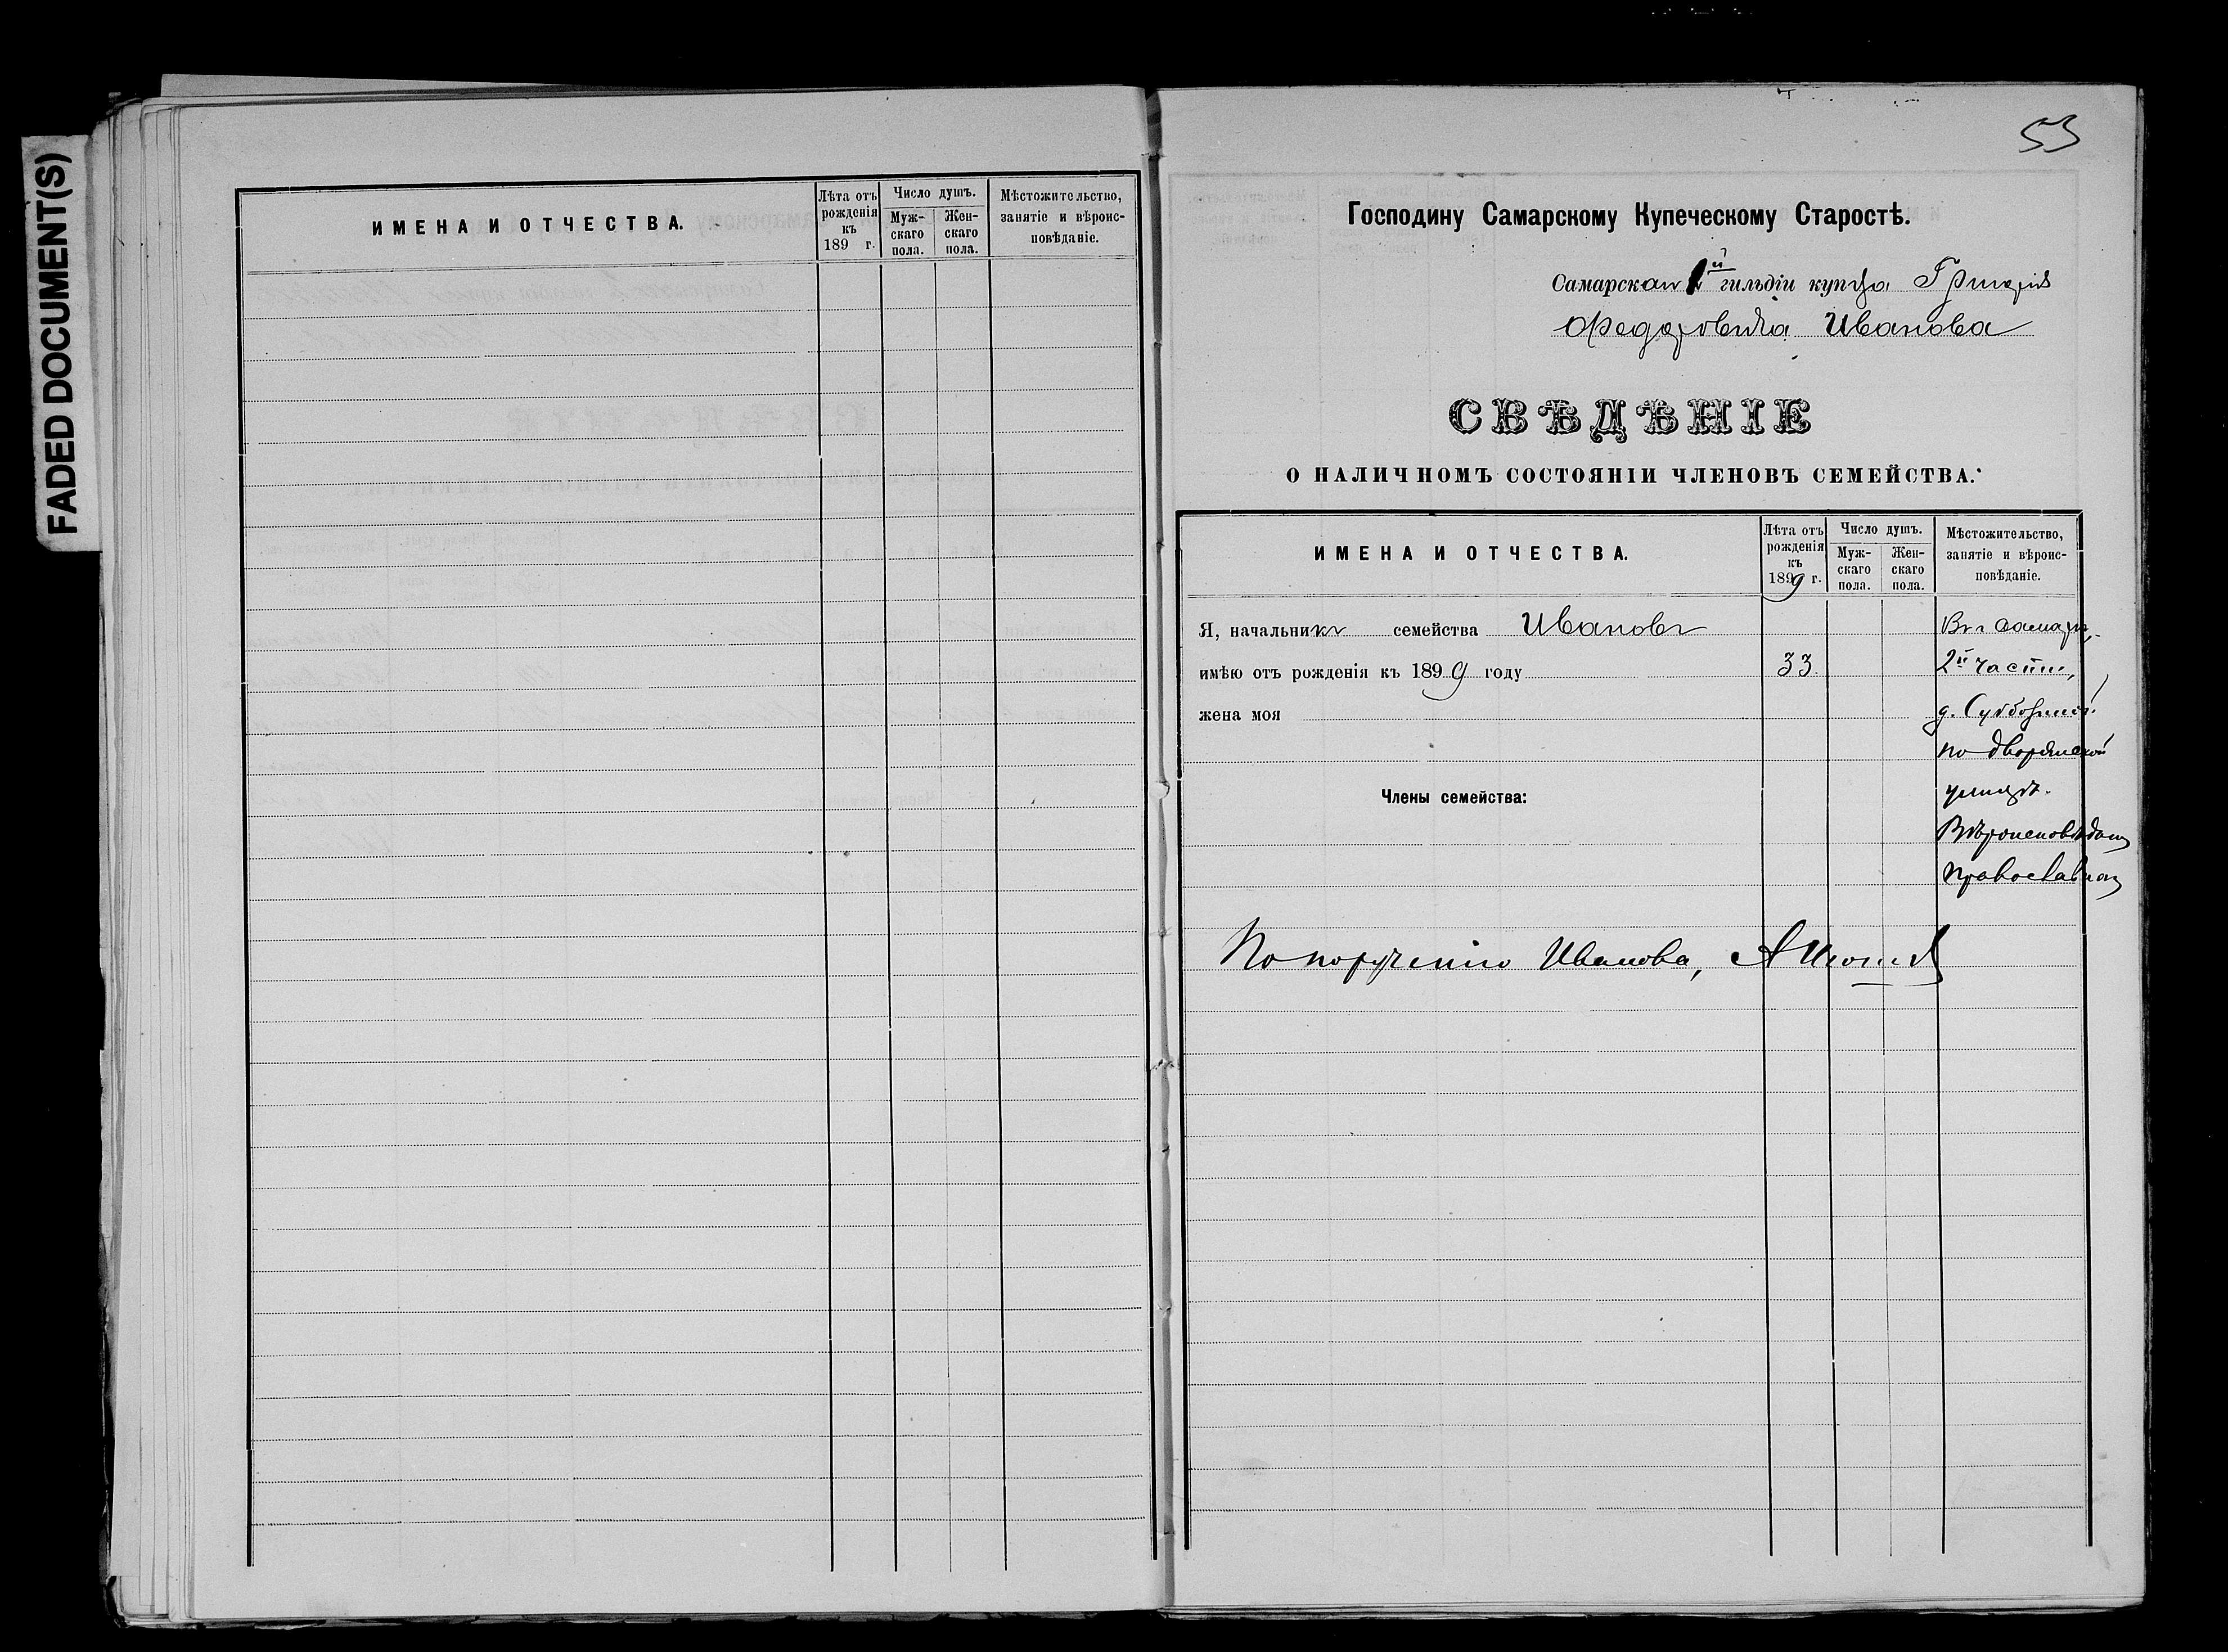 FADED DOCUMENT(S)
ИМЕНА И ОТЧЕСТВА.
Лѣта отъ рожденія къ 189 г.
Число душъ.
Муж-скаго пола.
Жен-скаго пола.
Мѣстожительство, занятіе и вѣроис-повѣданіе.
53
Господину Самарскому Купеческому Старостѣ.
Самарскаго й гильдіи купца Григорія
Федоровича Иванова
СВѢДѢНІЕ
О НАЛИЧНОМЪ СОСТОЯНІИ ЧЛЕНОВЪ СЕМЕЙСТВА.
ИМЕНА И ОТЧЕСТВА.
Лѣта отъ рожденія къ 1899 г.
Число душъ.
Муж-скаго пола.
Жен-скаго пола.
Мѣстожительство, занятіе и вѣроис-повѣданіе.
Я, начальникъ семейства Ивановъ
Въ г Самарѣ,
имѣю отъ рожденія къ 1899 году 33
2й части,
жена моя
д. Субботиной
по Дворянской
Члены семейства:
улицѣ.
Вѣроисповѣданія
православнаго
По порученію Иванова,